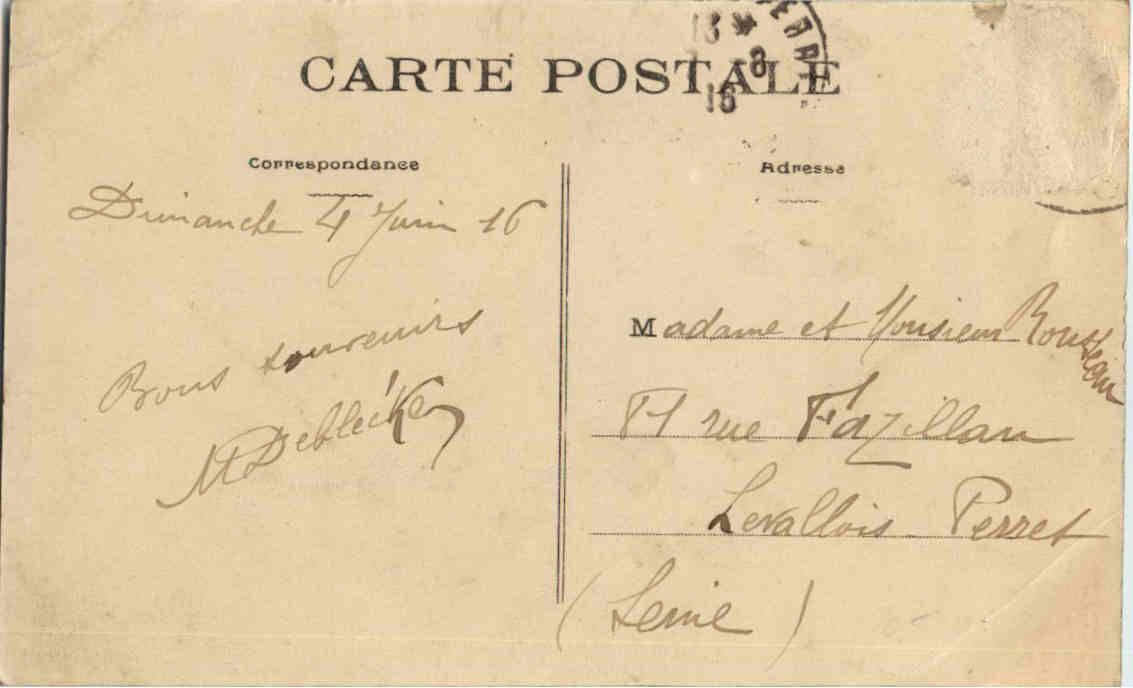 CARTE POSTALE
13 *
8
16
Correspondance
Adresse
Dimanche 4 Juin 16
Bons souvenirs
Madame et Monsieur Rousseau
rue Fazillau
Levallois Perret
(Seine)